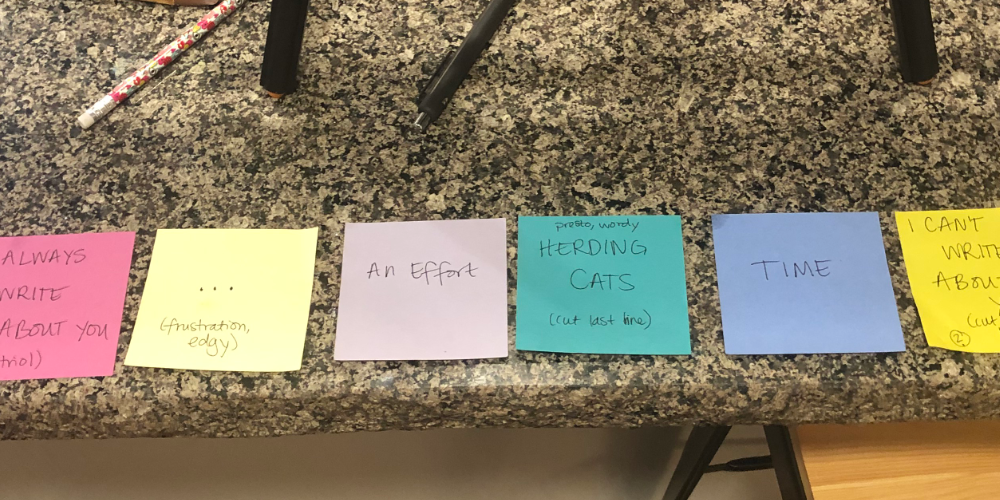 ALWAYS
WRITE
ABOUT YOU
trio)
...
(frustration,
edgy)
An Effort
presto, wordy
HERDING
CATS
(cut last line)
TIME
I CAN'T
WRITE
ABOU
(cut
2.